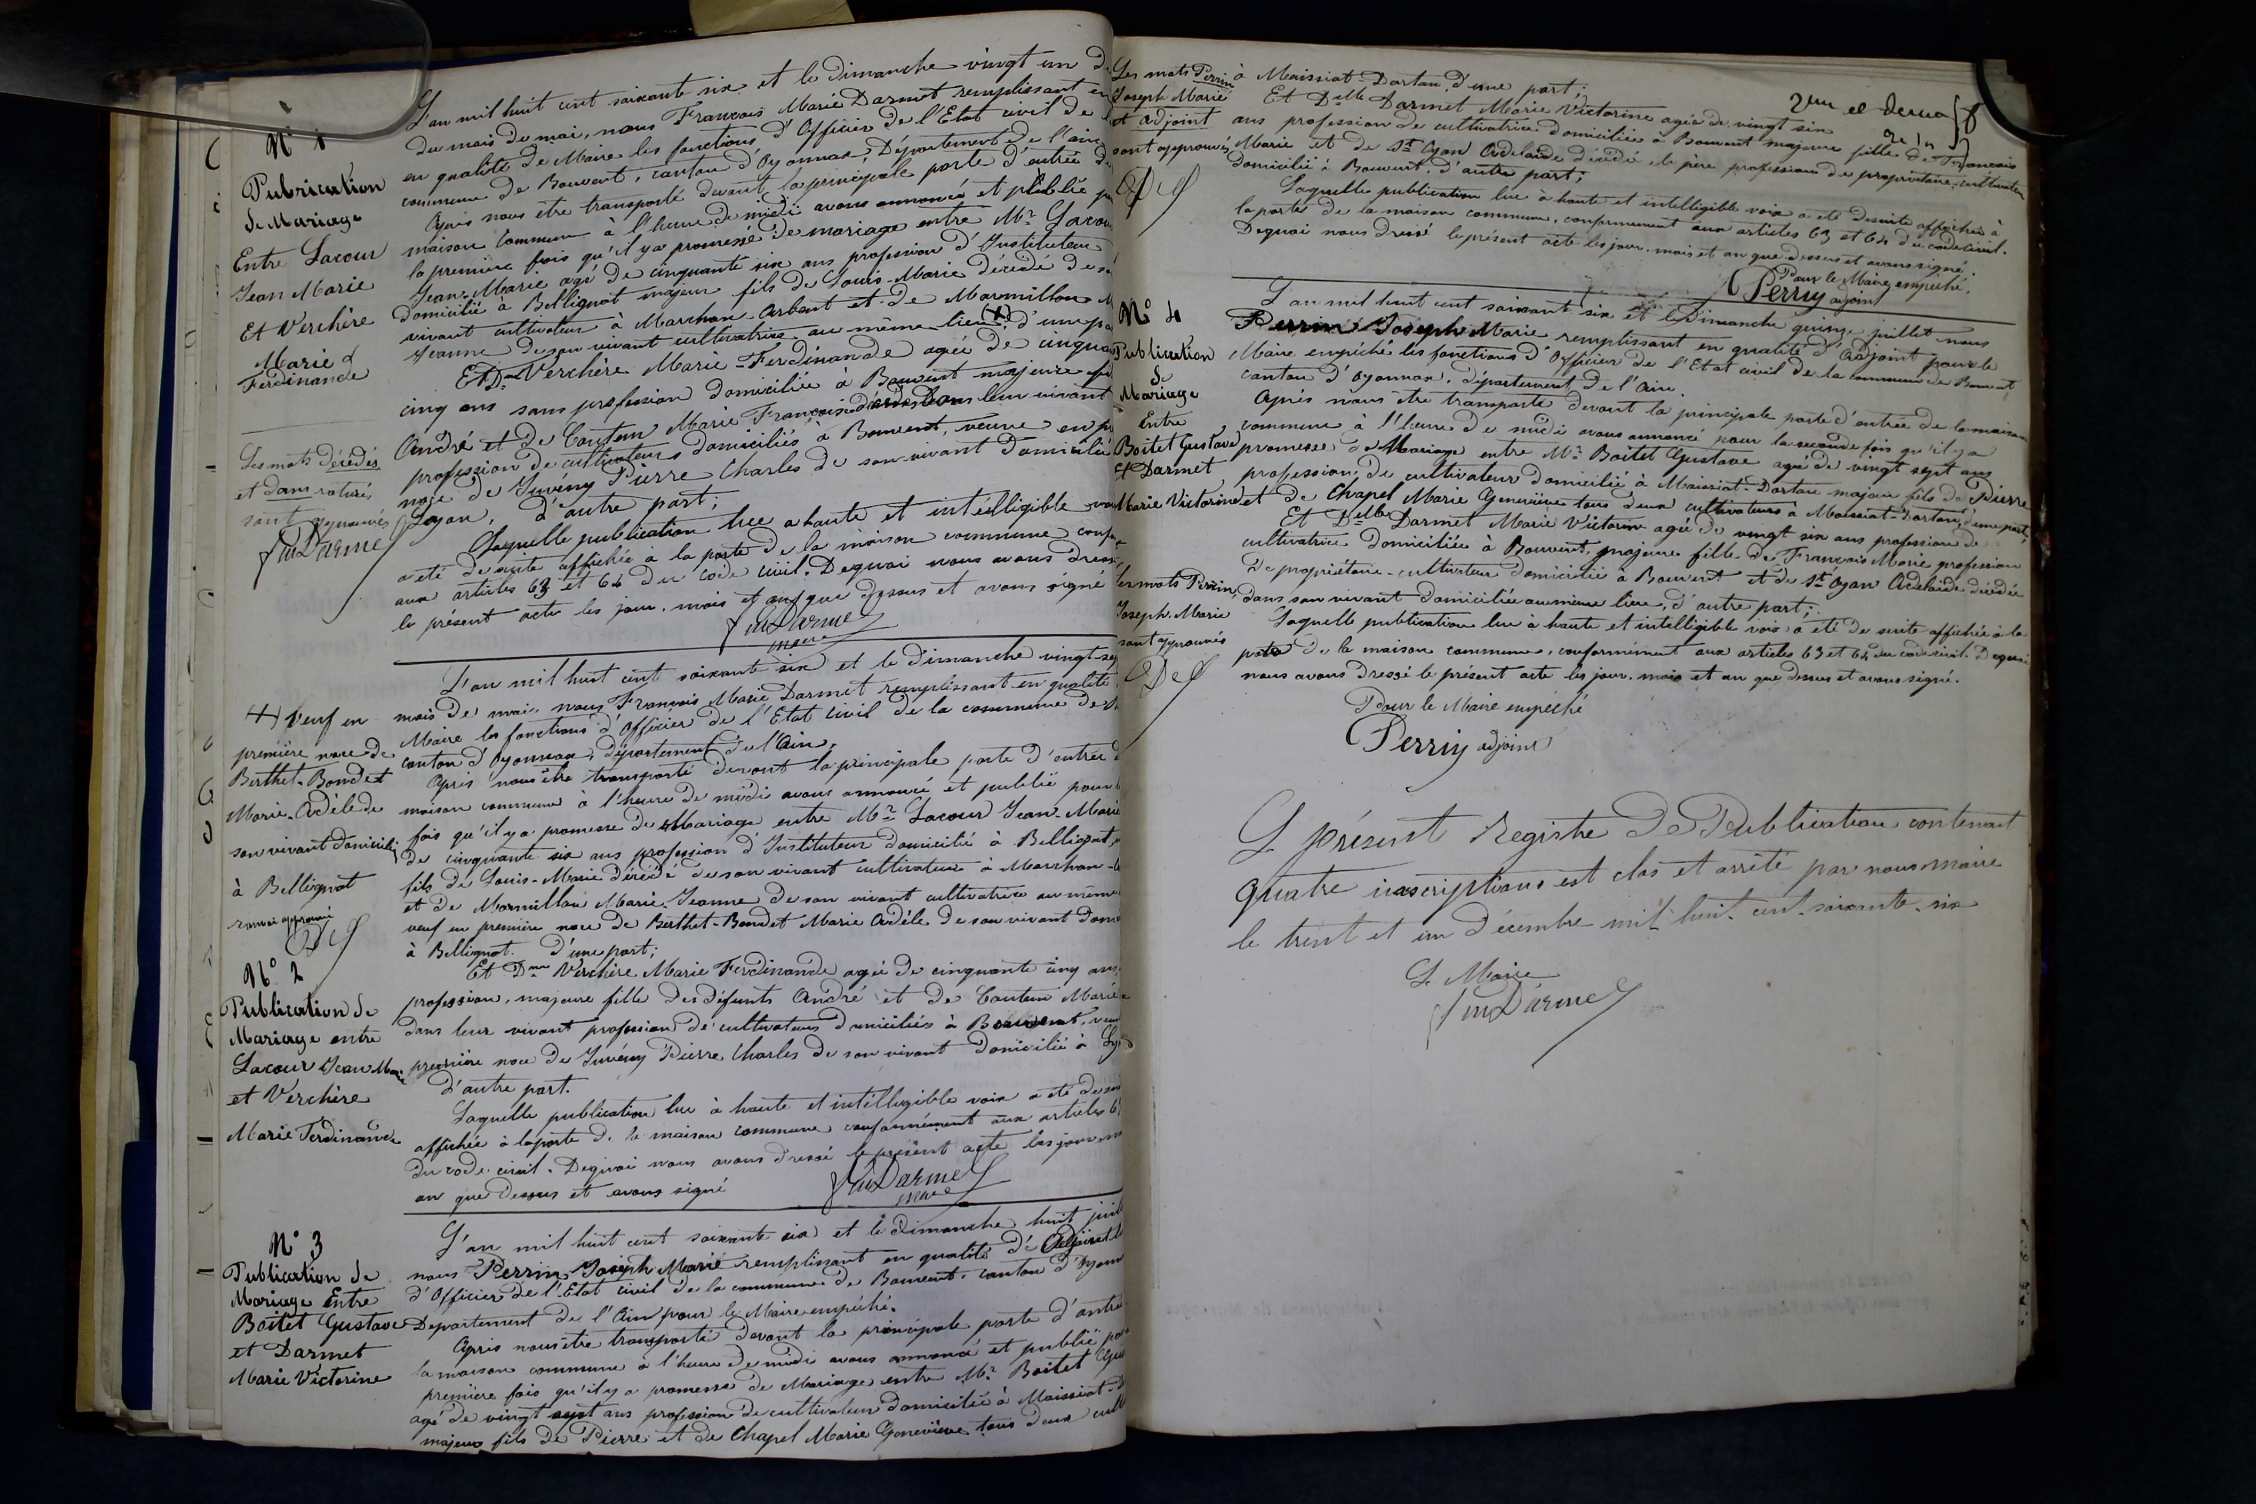 N° 1
Publication
de Mariage
Entre Lacour
Jean Marie
Et Verchère
Marie
Ferdinande
Les mots décédés
et dans raturés
sont approuvés
L'an mil huit cent soixante six et le Dimanche vingt un
du mois de mai, nous François Marie Darmet remplissant en
en qualité de Maire les fonctions d'Officier de l'Etat civil de
commune de Bouvent, canton d'Oyonnax, Département de l'ain
Après nous être transporté devant la principale porte d'entrée de
maison commune à l'heure de midi avons annoncé et publié
la première fois qu'il y a promesse de mariage entre Mr Lacour
Jean-Marie agé de cinquante six ans profession d'Instituteur
domicilié à Bellignat majeur fils de Louis-Marie décédé de
vivant cultivateur à Marchon-Arbent et de Marmillon
Jeanne de son vivant cultivatrice au même lieu (X) d'une
Et Dme Verchère Marie-Ferdinande agée de cinqua
cinq ans sans profession domiciliée à Bouvent majeure
André et de Coutun Marie Françoise leur vivant
profession de cultivateurs domiciliés à Bouvent, veuve en
noce de Juvény Pierre Charles de son vivant domicilié
Lyon, d'autre part;
Laquelle publication lue a haute et intelligible
a eté de suite affichée à la porte de la maison commune
aux articles 63 et 64 du code civil. Dequoi nous avons
le présent acte les jour, mois et an que dessus et avons signé
Darmet
maire
(+) Veuf en
première noce de
Berthet-Bondet
Marie-Adèle de
son vivant domicilié
à Bellignat
renvoi approuvé
N° 2
Publication de
Mariage entre
Lacour Jean Marie
et Verchère
Marie Ferdinande
L'an mil huit cent soixante six et le Dimanche vingt-sep
mois de mai, nous François Marie Darmet remplissant en qualité
Maire les fonctions d'Officier de l'Etat Civil de la commune de
canton d'Oyonnax, département de l'Ain.
Après nous être transporté devant la principale porte d'entrée
maison commune à l'heure de midi avons annoncé et publié pour
fois qu'il y a promesse de Mariage entre Mr Lacour Jean-Marie
de cinquante six ans profession d'Instituteur domicilié à Bellignat
fils de Louis-Marie décédé de son vivant cultivateur à Marchon
et de Marmillon Marie-Jeanne de son vivant cultivatrice au même
veuf en première noce de Berthet-Bondet Marie Adèle de son vivant dom
à Bellignat. d'une part;
Et Dme Verchère Marie Ferdinande agée de cinquante cinq ans
profession, majeure fille des défunts André et de Coutun Marie
dans leur vivant profession de cultivateurs domiciliés à Bouvent,
première noce de Juvény Pierre Charles de son vivant domicilié à Ly
d'autre part.
Laquelle publication lue à haute et intelligible voix a eté de
affichée à la porte de la maison commune conformément aux articles 6
du code civil. Dequoi nous avons dressé le présent acte les jour
an que dessus et avons signé
Darmet
maire
N° 3
Publication de
Mariage Entre
Boitet Gustave
et Darmet
Marie Victorine
L'an mil huit cent soixante six et le Dimanche huit juil
nous Perrin Joseph Marie remplissant en qualité d'Adjoint
d'Officier de l'Etat Civil de la commune de Bouvent, canton d'Oyon
Departement de l'Ain pour le Maire empêché.
Après nous être transporté devant la principale porte d'entrée
la maison commune à l'heure de midi avons annoncé et publié
première fois qu'il y a promesse de Mariage entre Mr Boitet
agé de vingt sept ans profession de cultivateur domicilié à Maissiat
majeur fils de Pierre et de Chapel Marie Geneviève tous deux
Les mots Perrin
Joseph Marie
et adjoint
sont approuvés
à Maissiat-Dortan, d'une part;
Et Delle Darmet Marie Victorine agée de vingt six
ans profession de cultivatrice domiciliée à Bouvent majeure fille de François
Marie et de St Oyan Adelaïde décédée, le père profession de propriétaire-cultivateur
domicilié à Bouvent, d'autre part;
Laquelle publication lue à haute et intelligible voix a eté de suite affichée à
la porte de la maison commune, conformément aux articles 63 et 64 du code civil.
Dequoi nous dressé le présent acte les jour, mois et an que dessus et avons signé.
Pour le Maire empêché.
Perrin adjoint
N° 4
Publication
de
Mariage
Entre
Boitet Gustave
Et Darmet
Marie Victorine
Les mots Perrin,
Joseph-Marie
sont approuvés
L'an mil huit cent soixante six et le Dimanche quinze juillet nous
Perrin Joseph Marie remplissant en qualité d'Adjoint pour le
Maire empêché les fonctions d'Officier de l'Etat civil de la commune de Bouvent
canton d'oyonnax, département de l'Ain.
Après nous être transporté devant la principale porte d'entrée de la maison
commune à l'heure de midi avons annoncé pour la seconde fois qu'il y a
promesse de Mariage entre Mr Boitet Gustave agé de vingt sept ans
profession de cultivateur domicilié à Maissiat-Dortan majeur fils de Pierre
et de Chapel Marie Geneviève tous deux cultivateurs à Maissiat-Dortan, d'une part;
Et Delle Darmet Marie Victorine agée de vingt six ans profession de
cultivatrice domiciliée à Bouvent, majeure fille de François Marie profession
de propriétaire-cultivateur domicilié à Bouvent et de St Oyan Adelaïde décédée
dans son vivant domiciliée au même lieu, d'autre part;
Laquelle publication lue à haute et intelligible voix a eté de suite affichée à la
porte de la maison commune, conformément aux articles 63 et 64 du code civil. Dequoi
nous avons dressé le présent acte les jour, mois et an que dessus et avons signé.
Pour le Maire empêché
Perrin adjoint
Le présent Registre de Publication contenant
quatre inscriptions est clos et arrêté par nous maire
le trent et un Décembre mil huit cent soixante-six
Le Maire
Darmet